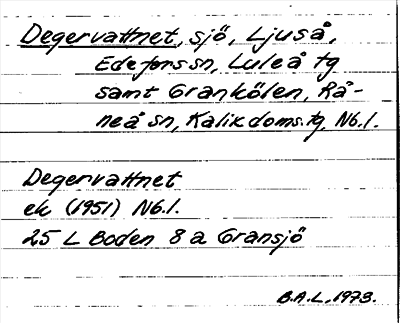 Degervattnet, sjö, Ljuså,
Edefors sn, Luleå tg
samt Grankölen, Rå-
neå sn, Kalix doms.tg, Nb.l.
Degervattnet
ek (1951) Nb.l.
25 L Boden 8 a Gransjö
B.A.L, 1973.